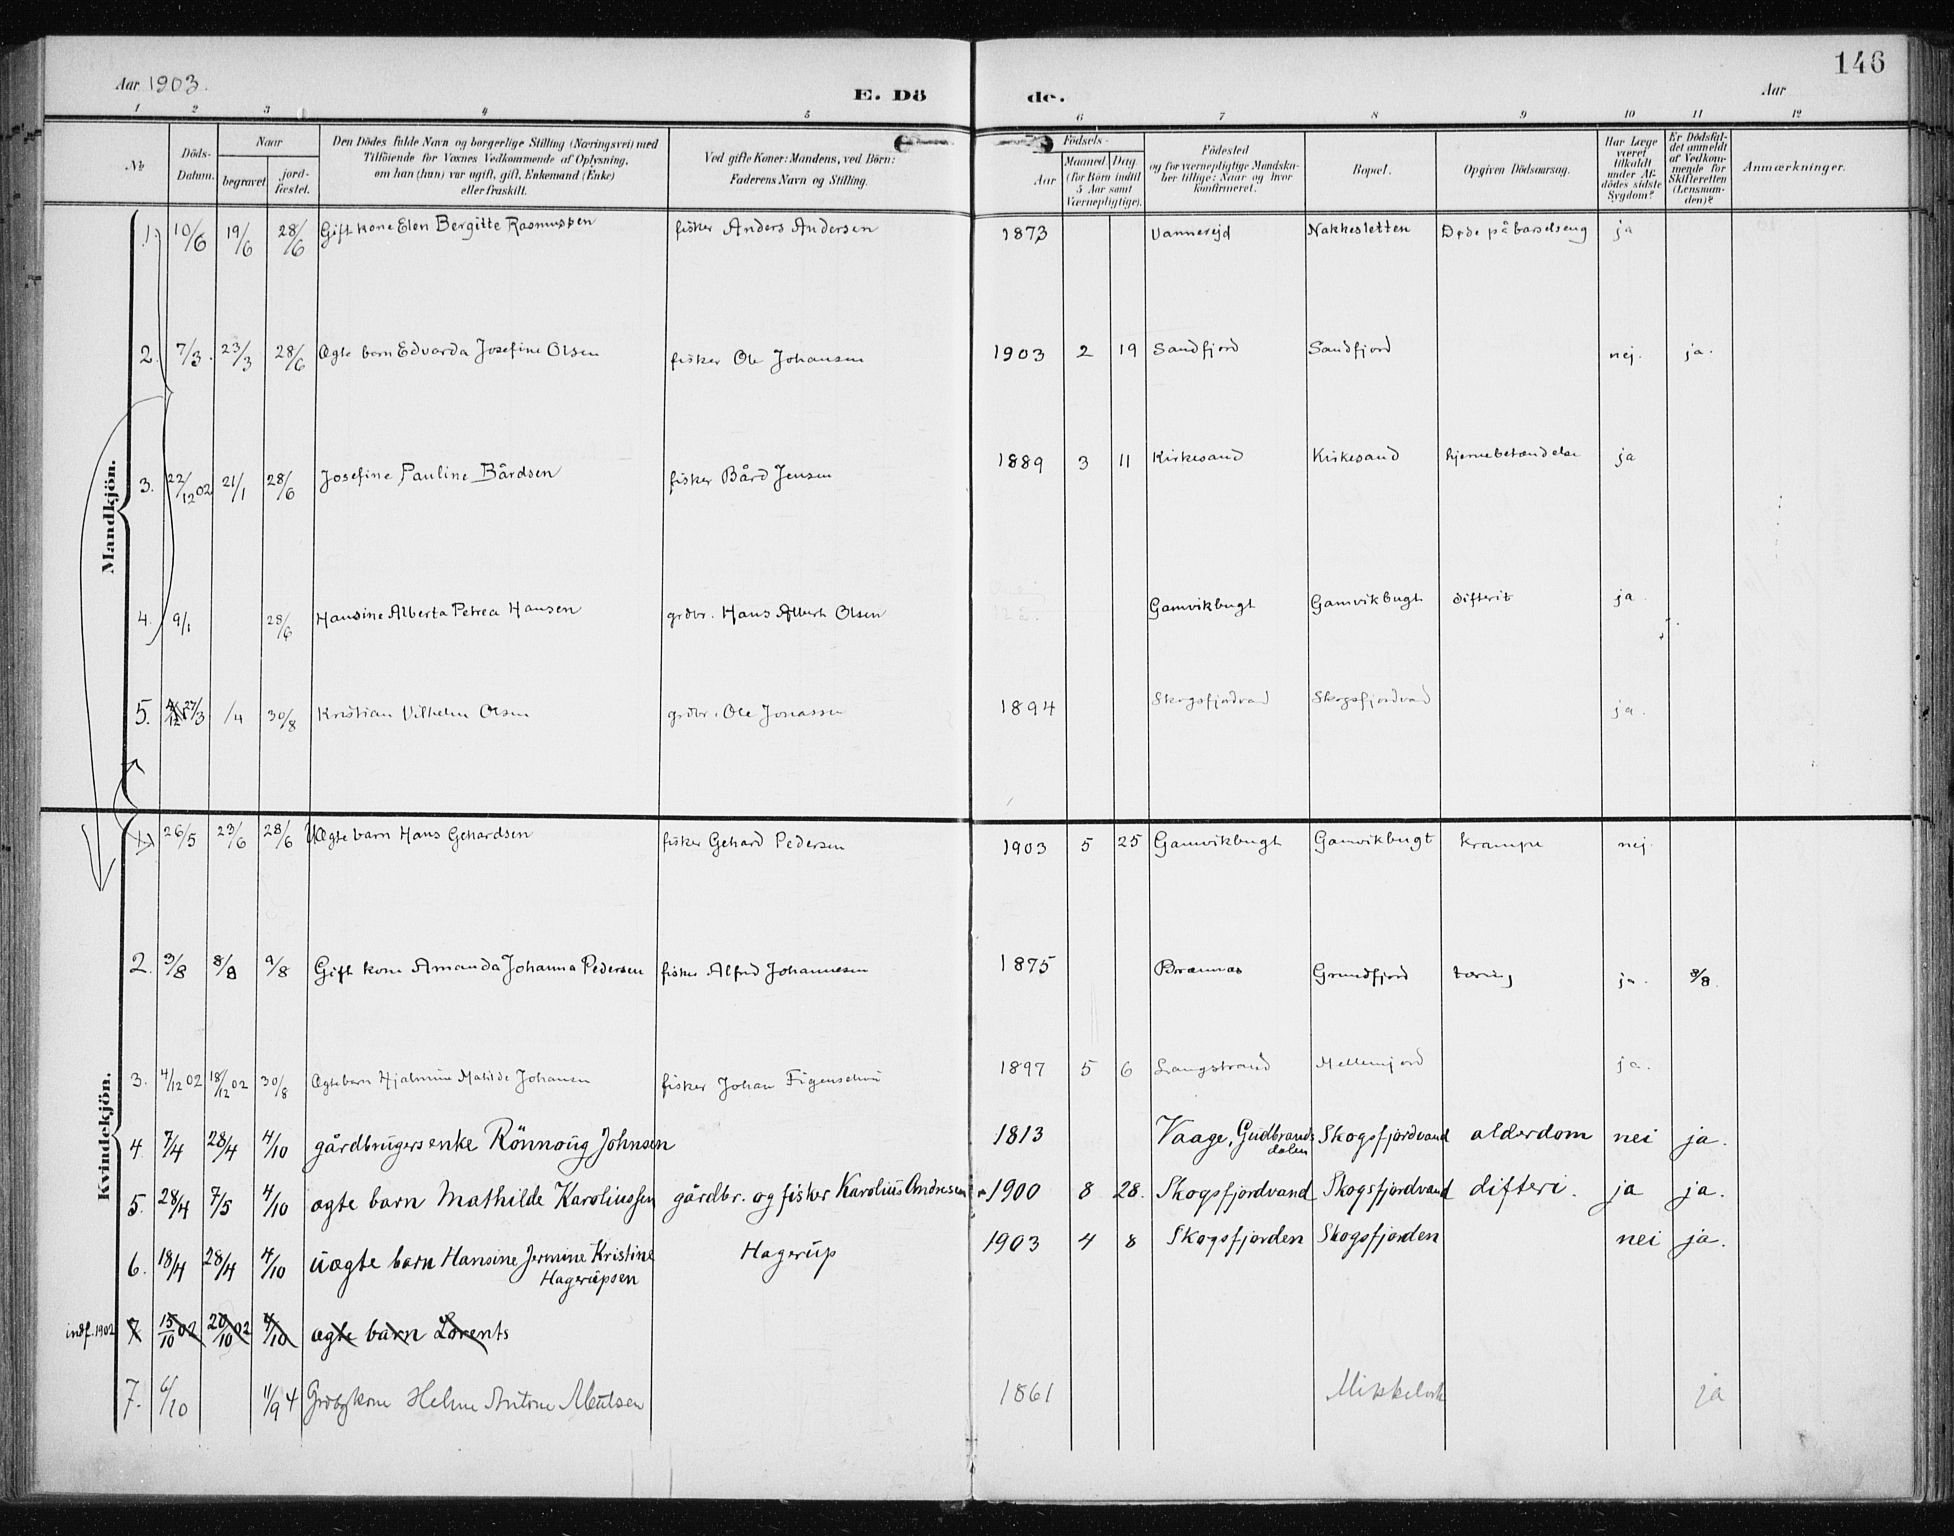 146
Aar 1903.
E. Dö de.
Aar
1 2 3 4 5 6 7 8 9 10 11 12
№
Döds-Datum.
Naar
begravet.
jord-fæstet.
Den Dödes fulde Navn og borgerlige Stilling (Næringsvei) med
Tilföiende for Voxnes Vedkommende af Oplysning,
om han (hun) var ugift, gift, Enkemand (Enke)
eller fraskilt.
Ved gifte Koner: Mandens, ved Börn:
Faderens Navn og Stilling.
Födsels-
Aar
Maaned. Dag.
(for Börn indtil
5 Aar samt
Værnepligtige).
Födested
og for værnepligtige Mandska-
ber tillige: Naar og hvor
konfirmeret.
Bopæl.
Opgiven Dödsaarsag.
Har Læge
været
tilkaldt
under Af-
dödes sidste
Sygdom?
Er Dödsfal-
det anmeldt
af Vedkom-
mende for
Skifteretten
(Lensman-
den)?
Anmærkninger.
Mandkjön.
1. 10/6 19/6 28/6 Gift kone Elen Bergitte Rasmussen fisker Anders Andersen 1873 Vannerejd Nakkesletten Døde på barselseng ja
2. 7/3. 23/3 28/6 Ægte barn Edvarda Josefine Olsen fisker Ole Johansen 1903 2 19 Sandfjord Sandfjord nej. ja.
3. 22/12 02 21/1 28/6 Josefine Pauline Bårdsen fisker Bård Jensen 1889 3 11 Kirkesand Kirkesand hjernebetændelse ja
4. 9/1 28/6 Hansine Alberta Petrea Hansen grdbr. Hans Albert Olsen Gamvikbugt Gamvikbugt difterit ja
5. 27/3 /4 30/8 Kristian Vilhelm Olsen grdbr. Ole Jonassen 1894 Skogsfjordvad Skogsfjordvad ja.
Kvindekjön.
1. 26/5 23/6 28/6 UÆgte barn Hans Gehardsen fisker Gehard Pedersen 1903 5 25 Gamvikbugt Gamvikbugt krampe nej.
2. 3/8 8/8 9/8 Gift kone Amanda Johanna Pedersen fisker Alfred Johannesen 1875 Brænnæs Grundfjord tæring ja. 8/8.
3. 4/12 02 18/12 02 30/8 Ægte barn Hjalmine Matilde Johansen fisker Johan Figenschau 1897 5 6 Langstrand Mellemjord ja.
4. 7/4 28/4 4/10 gårdbrugers enke Rönnoug Johnsen 1813 Vaage, Gudbrands
dalen Skogsfjordvand alderdom nei ja.
5. 28/4 7/5 4/10 ægte barn Mathilde Karoliussen gårdbr. og fisker Karolius Andresen 1900 8 28. Skogsfjordvand Skogsfjordvand difteri. ja ja.
6. 18/4 28/4 4/10 uægte barn Hansine Jermine Kristine
Hagerupsen Hagerup 1903 4 8 Skogsfjorden Skogsfjorden nei ja.
indf. 1902 7 15/10 02 20/10 02 4/10 ægte barn Lorents
7. 6/10 11/9 4 1861 Mikkelvik ja